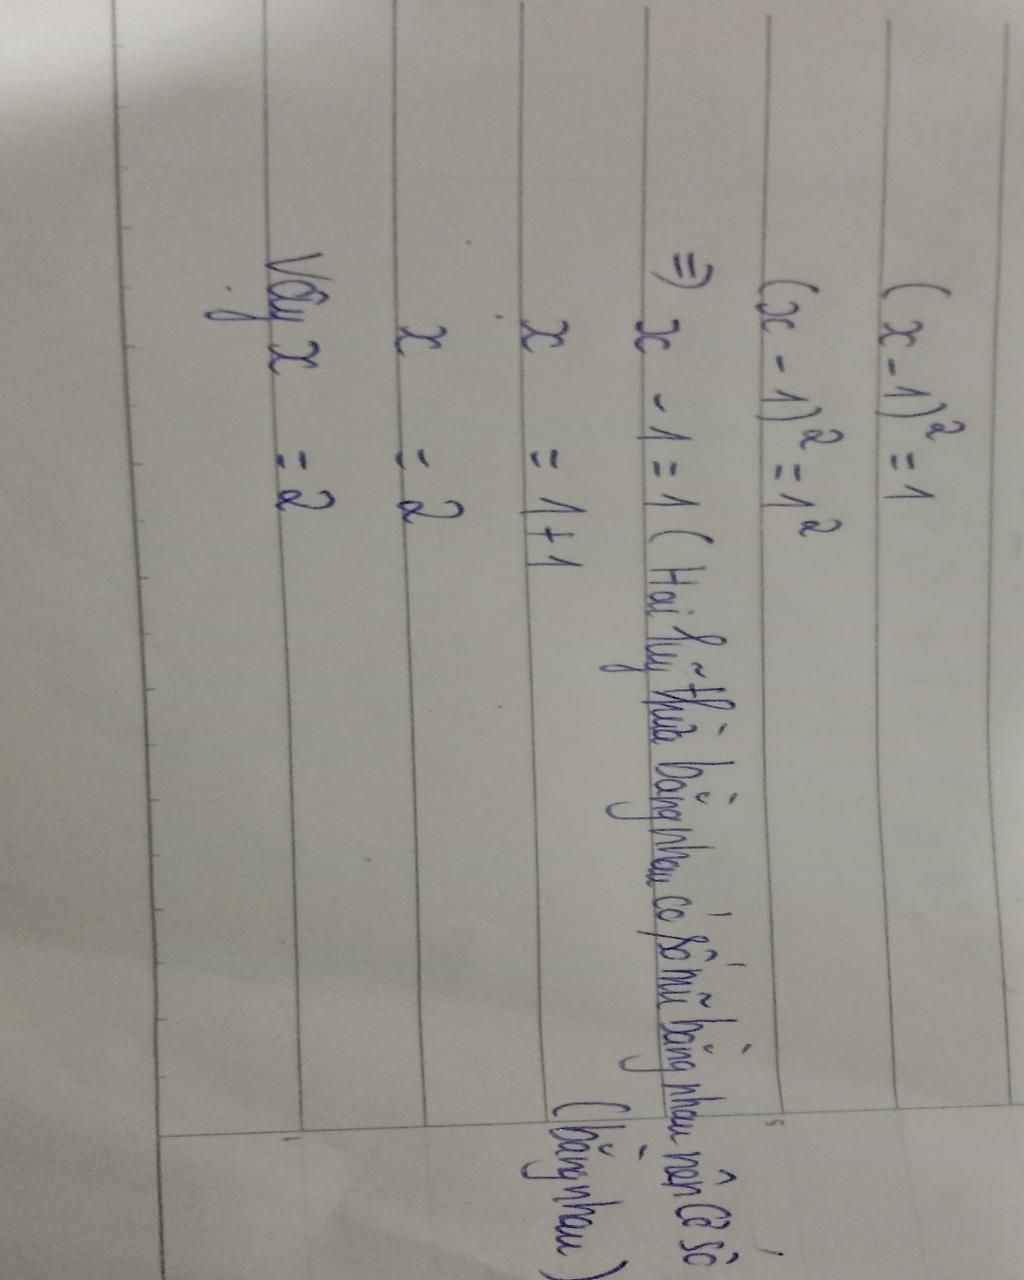 (x - 1)² = 1
(x - 1)² = 1²
⇒ x - 1 = 1 (Hai lũy thừa bằng nhau có số mũ bằng nhau nên cơ số
x = 1 + 1 (bằng nhau)
x = 2
Vậy x = 2